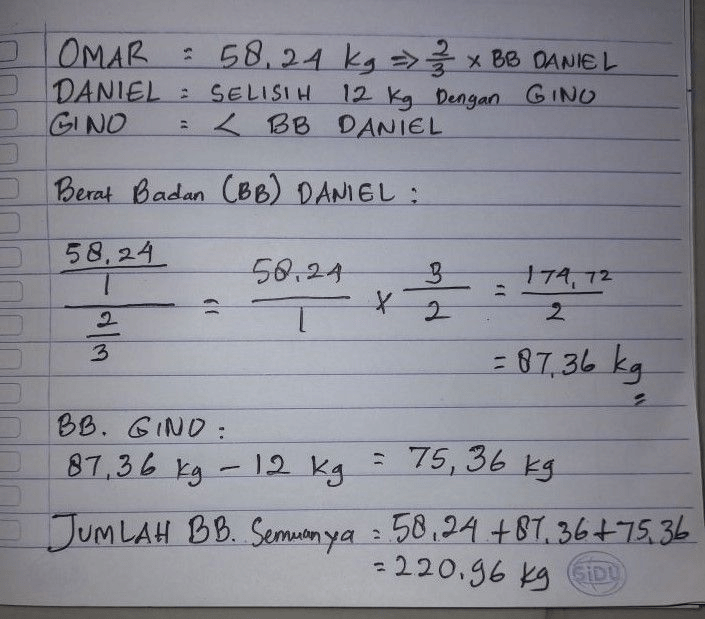 OMAR : 58,24 kg ⇒ 2/3 x BB DANIEL
DANIEL : SELISIH 12 kg Dengan GINO
GINO : < BB DANIEL
Berat Badan (BB) DANIEL :
58,24/1 / 2/3 = 58,24/1 x 3/2 = 174,72/2
= 87,36 kg
BB. GINO :
87,36 kg - 12 kg = 75,36 kg
JUMLAH BB. Semuanya = 58,24 + 87,36 + 75,36
= 220,96 kg
SiDU